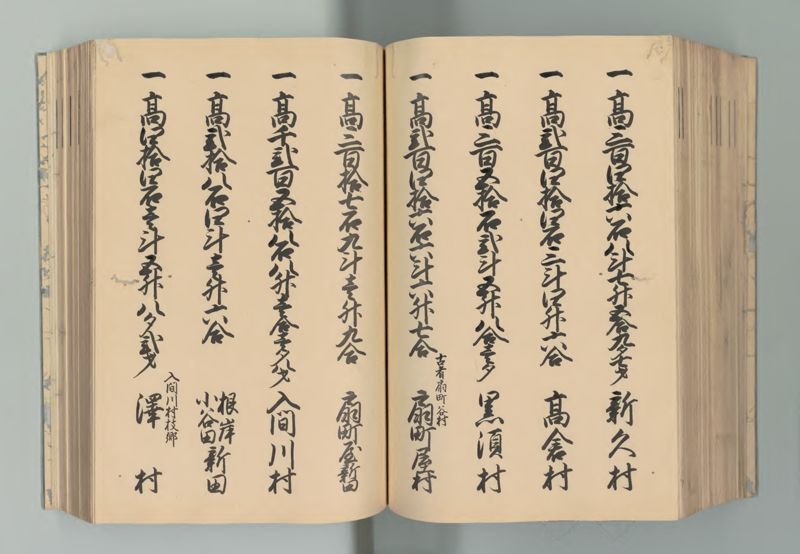 一 高三百四拾六石八斗七升五合九夕壱才 新久村
一 高弐百四拾四石三斗四升六合 高倉村
一 高三百五拾石弐斗五升八合壱夕 黒須村
古者扇町谷村
一 高弐百四拾六石六斗六升七合 扇町屋村
一 高三百拾七石九斗壱升九合 扇町屋新田
一 高千弐百五拾八石八升壱合壱夕八才 入間川村
一 高弐拾八石四斗壱升六合 根岸 小谷田 新田
入間川村枝郷
一 高四拾四石壱斗五升八夕弐才 澤村